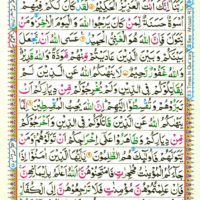 رَبَّنَا إِنَّكَ أَنْتَ الْعَزِيزُ الْحَكِيمُ لَقَدْ كَانَ لَكُمْ فِيهِمْ
أُسْوَةٌ حَسَنَةٌ لِّمَنْ كَانَ يَرْجُوا اللّٰهَ وَالْيَوْمَ الْاٰخِرَ وَمَنْ
يَّتَوَلَّ فَإِنَّ اللّٰهَ هُوَ الْغَنِيُّ الْحَمِيدُ عَسَى اللّٰهُ أَنْ يَّجْعَلَ
بَيْنَكُمْ وَبَيْنَ الَّذِينَ عَادَيْتُمْ مِّنْهُمْ مَّوَدَّةً وَاللّٰهُ قَدِيرٌ
وَاللّٰهُ غَفُورٌ رَّحِيمٌ لَا يَنْهٰىكُمُ اللّٰهُ عَنِ الَّذِينَ لَمْ
يُقَاتِلُوكُمْ فِي الدِّينِ وَلَمْ يُخْرِجُوكُمْ مِّنْ دِيَارِكُمْ أَنْ
تَبَرُّوهُمْ وَتُقْسِطُوا إِلَيْهِمْ إِنَّ اللّٰهَ يُحِبُّ الْمُقْسِطِينَ إِنَّمَا
يَنْهٰىكُمُ اللّٰهُ عَنِ الَّذِينَ قَاتَلُوكُمْ فِي الدِّينِ وَأَخْرَجُوكُمْ
مِّنْ دِيَارِكُمْ وَظَاهَرُوا عَلٰى إِخْرَاجِكُمْ أَنْ تَوَلَّوْهُمْ وَمَنْ
يَّتَوَلَّهُمْ فَأُولٰئِكَ هُمُ الظّٰلِمُونَ يٰأَيُّهَا الَّذِينَ اٰمَنُوا إِذَا
جَاءَكُمُ الْمُؤْمِنٰتُ مُهٰجِرٰتٍ فَامْتَحِنُوهُنَّ اللّٰهُ أَعْلَمُ بِإِيمَانِهِنَّ
فَإِنْ عَلِمْتُمُوهُنَّ مُؤْمِنٰتٍ فَلَا تَرْجِعُوهُنَّ إِلَى الْكُفَّارِ